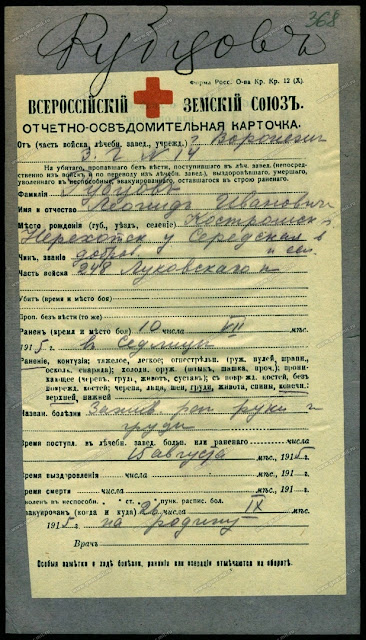 368
Кубцовъ
Форма Росс. О-ва Кр. Кр. 12 (X).
ВСЕРОССІЙСКІЙ ЗЕМСКІЙ СОЮЗЪ.
ОТЧЕТНО-ОСВѢДОМИТЕЛЬНАЯ КАРТОЧКА.
Отъ (часть войска, лѣчебн. завед., учрежд.) г Воронежъ
На убитаго, пропавшаго безъ вѣсти, поступившаго въ лѣч. завед. (непосредственно
изъ войскъ и по переводу изъ лѣчебн. завед.), выздоровѣвшаго, умершаго,
уволеннаго въ неспособные, эвакуированнаго, оставшагося въ строю раненаго.
Фамилія Кубцовъ
Имя и отчество Леонидъ Ивановичъ
Мѣсто рожденія (губ., уѣздъ, селеніе) Костромск
Нерехотск у Середская в
Чинъ, званіе добров.
Часть войска 248 Луковскаго п
Убитъ (время и мѣсто боя)
Проп. безъ вѣсти (то же)
Раненъ (время и мѣсто боя) 10 числа VII мѣс.,
1915 г. в Седлицы
Раненіе, контузія: тяжелое, легкое; огнестрѣльн. (руж. пулей, шрапн.,
оскол. снаряда); холодн. оруж. (штыкъ, шашка, проч.); проникающее
(череп., грудь, животъ, суставъ); съ поврежд. костей, безъ
поврежд. костей; черепа, лица, шеи, груди, живота, спины, конечн.:
верхней, нижней
Назван. болѣзни руки и
груди
Время поступл. въ лѣчебн. завед. больн. или раненаго числа
15 августа мѣс., 1915 г.
Время выздоровленія мѣс., 191 г.
Время смерти числа мѣс., 191 г.
Уволенъ въ неспособн. " ст. " пунк. распис. бол.
Эвакуированъ (когда и куда) 26 числа IX мѣс.,
1915 г. на родину
Врачъ
Особыя замѣтки о ходѣ болѣзни, раненія или операціи отмѣчаются на оборотѣ.